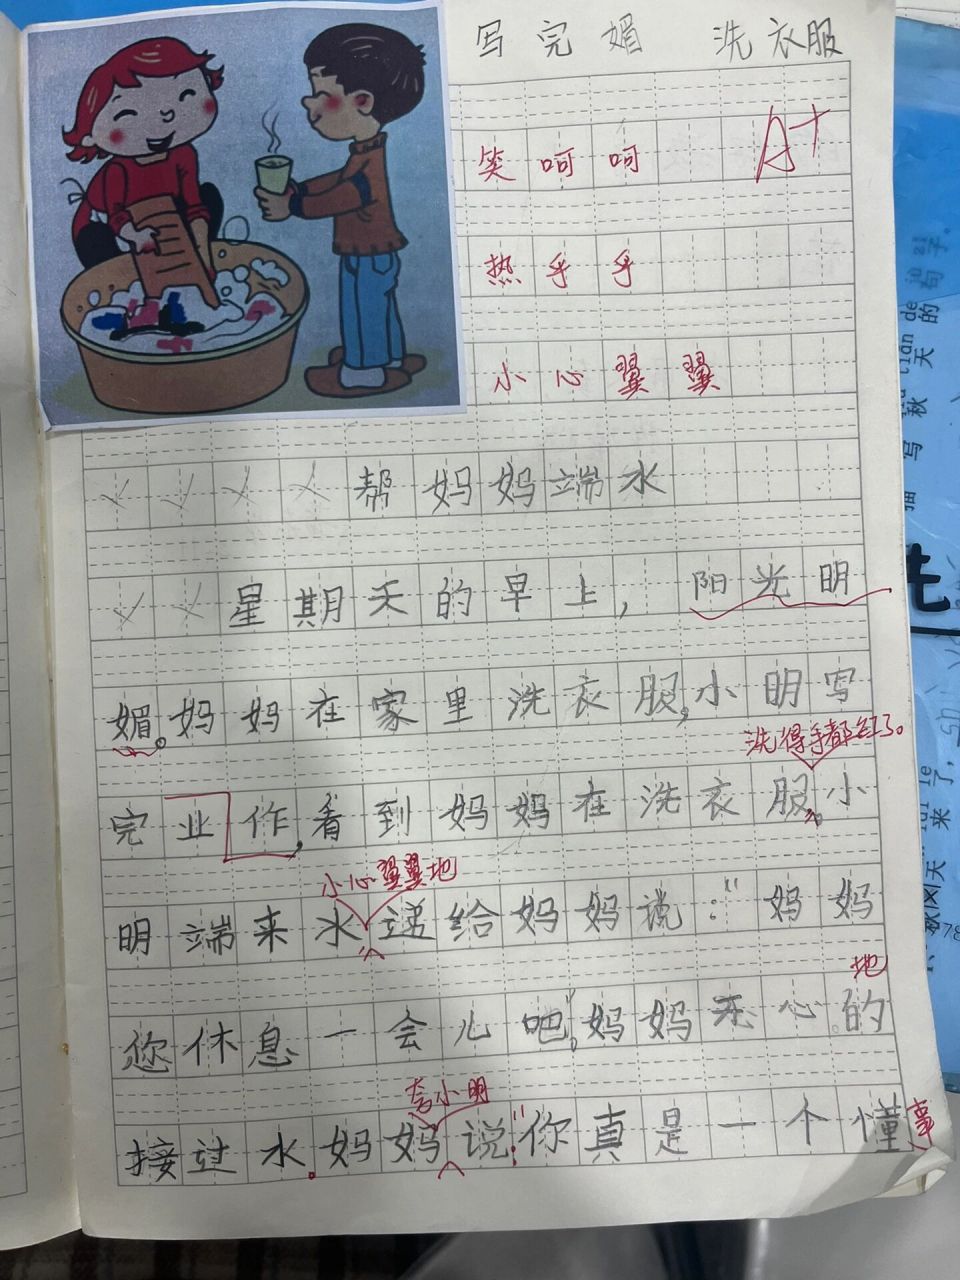 写完媚 洗衣服
笑呵呵 A+
热乎乎
小心翼翼
帮妈妈端水
星期天的早上，阳光明
媚。妈妈在家里洗衣服，小明写
洗得手都红了。
完业作，看到妈妈在洗衣服。小
小心翼翼地
明端来水递给妈妈说：“妈妈
地
您休息一会儿吧”，妈妈开心的
夸小明
接过水。妈妈说：“你真是一个懂
事